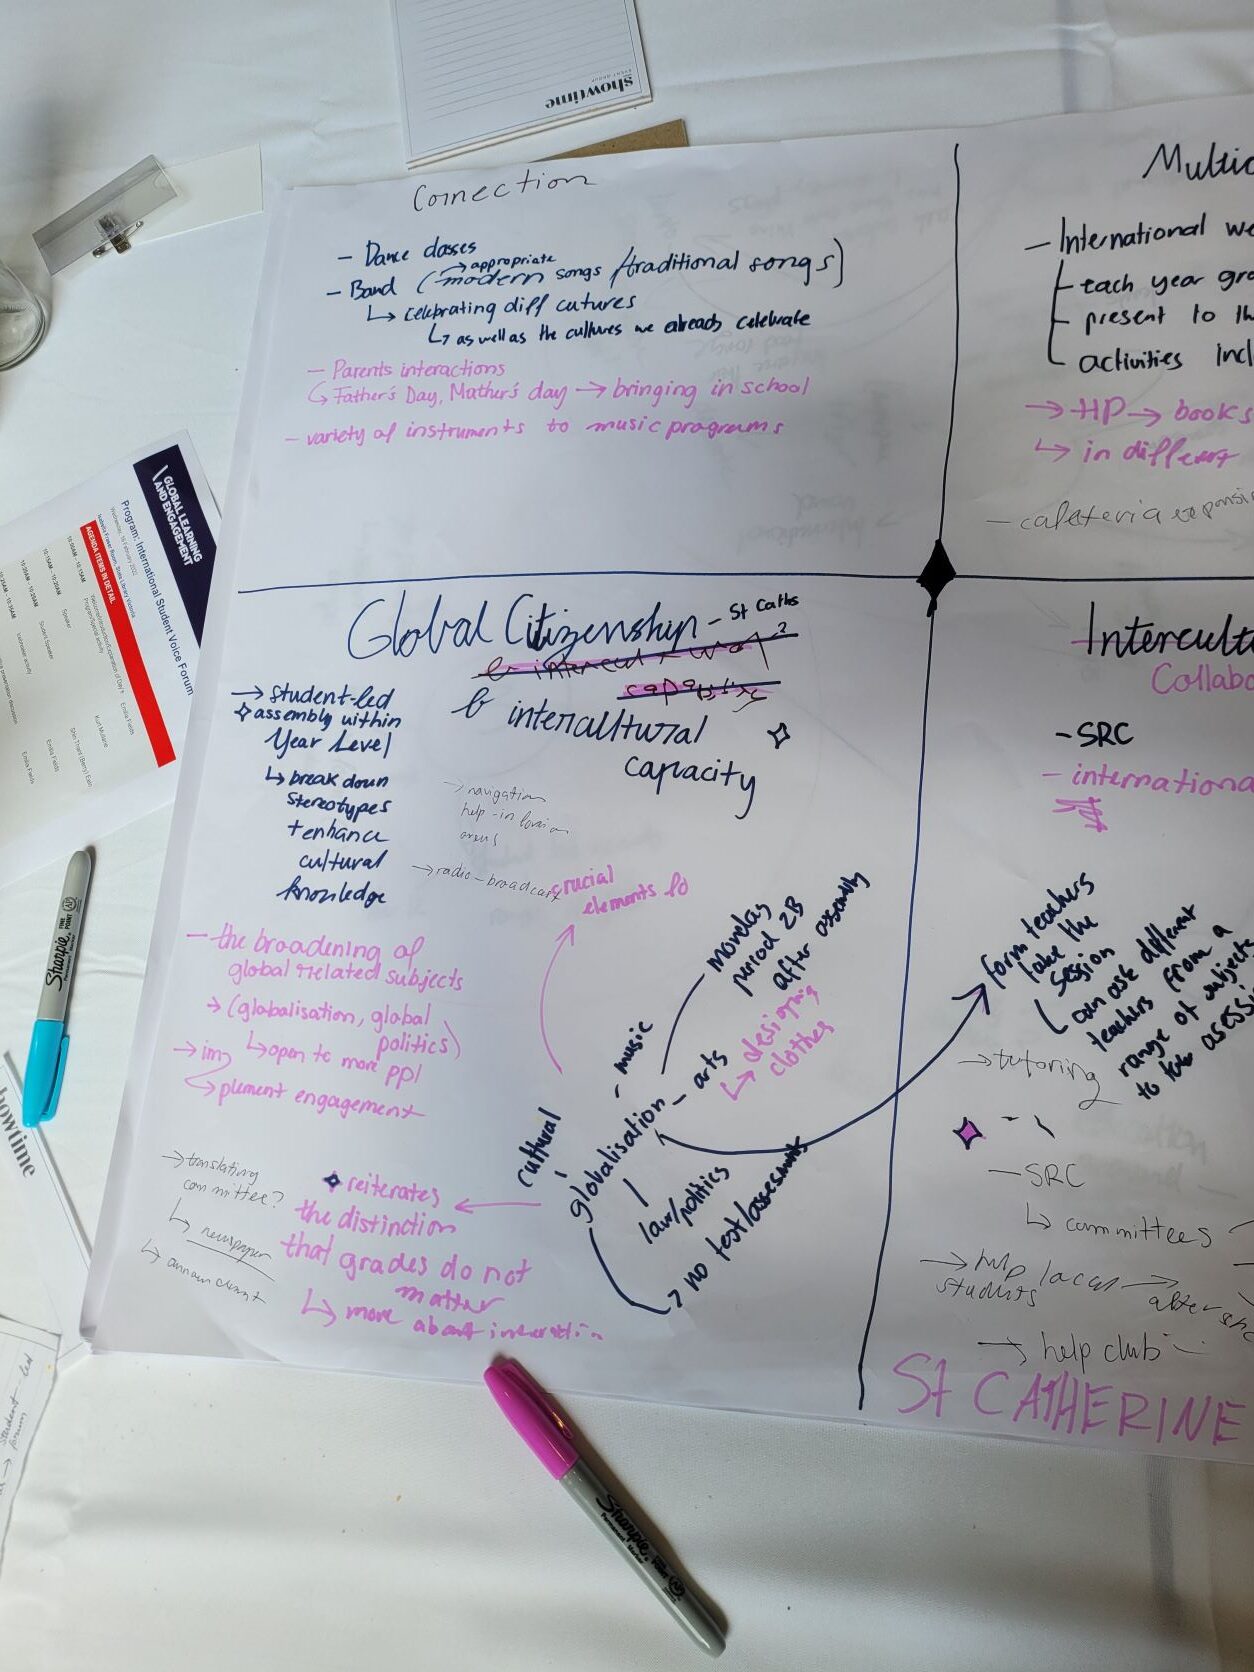 showtime
EVENT GROUP
Connection
- Dance classes
→ appropriate
- Band (modern songs /traditional songs)
↳ celebrating diff cutures
↳ as well as the cultures we already celebrate
- Parents interactions
↳ Father's Day, Mother's day → bringing in school
- variety of instruments to music programs
Multic
- International we
- each year gro
- present to th
activities incl
→ HP → books
↳ in different
- cafeteria expansi
GLOBAL LEARNING
AND ENGAGEMENT
Program: International Student Voice Forum
Wednesday, 16 February 2022
AGENDA ITEMS IN DETAIL
Global Citizenship - St Caths
& intercultural
capacity
→ student-led
assembly within
Year Level
↳ break down
stereotypes
+ enhance
cultural
knowledge
→ navigation
help - in
areas
→ radio-broadcast
crucial
elements to
- the broadening of
global related subjects
→ (globalisation, global
politics)
↳ open to more ppl
→ im
plement engagement
→ translating
committee?
↳ newspaper
↳
reiterates
the distinction
that grades do not
matter
↳ more about
cultural
globalisation
- music
- arts
↳ designing
clothes
law/politics
→ no test/assessments
mondays
period 2B
after assembly
Intercultu
Collabo
- SRC
- internationa
form teachers
take the
session
↳ can ask different
teachers from a
range of subjects
to
→ tutoring
- SRC
↳ committees
→ help local →
students
after
→ help club
St CATHERINE
Sharpie
FINE POINT
Permanent Marker
howtime
→ student led
forum
Sharpie
Permanent Marker